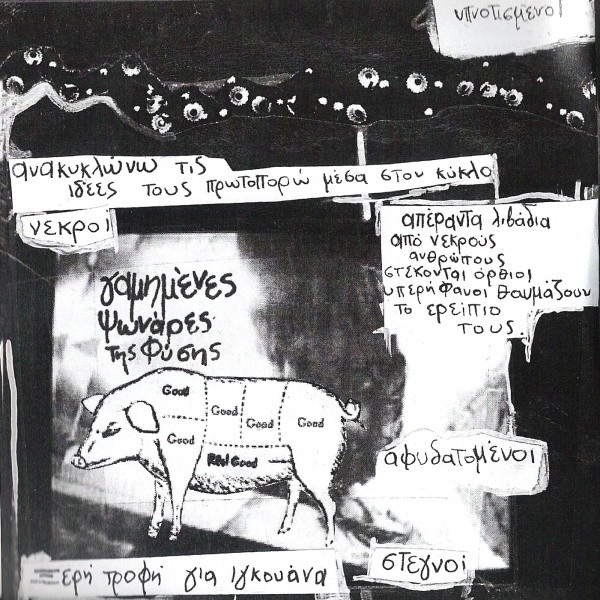 υπνοτισμένοι
ανακυκλώνω τις
ιδέες τους πρωτοπορώ μέσα στον κύκλο
νεκροί
απέραντα λιβάδια
από νεκρούς
ανθρώπους
στέκονται όρθιοι
υπερήφανοι θαυμάζουν
το ερείπιο
τους.
γαμημένες
ψωνάρες
της φύσης
Good
Good
Good
Good
Good
Real Good
αφυδατομένοι
στεγνοί
Ξερή τροφή για ιγκουάνα